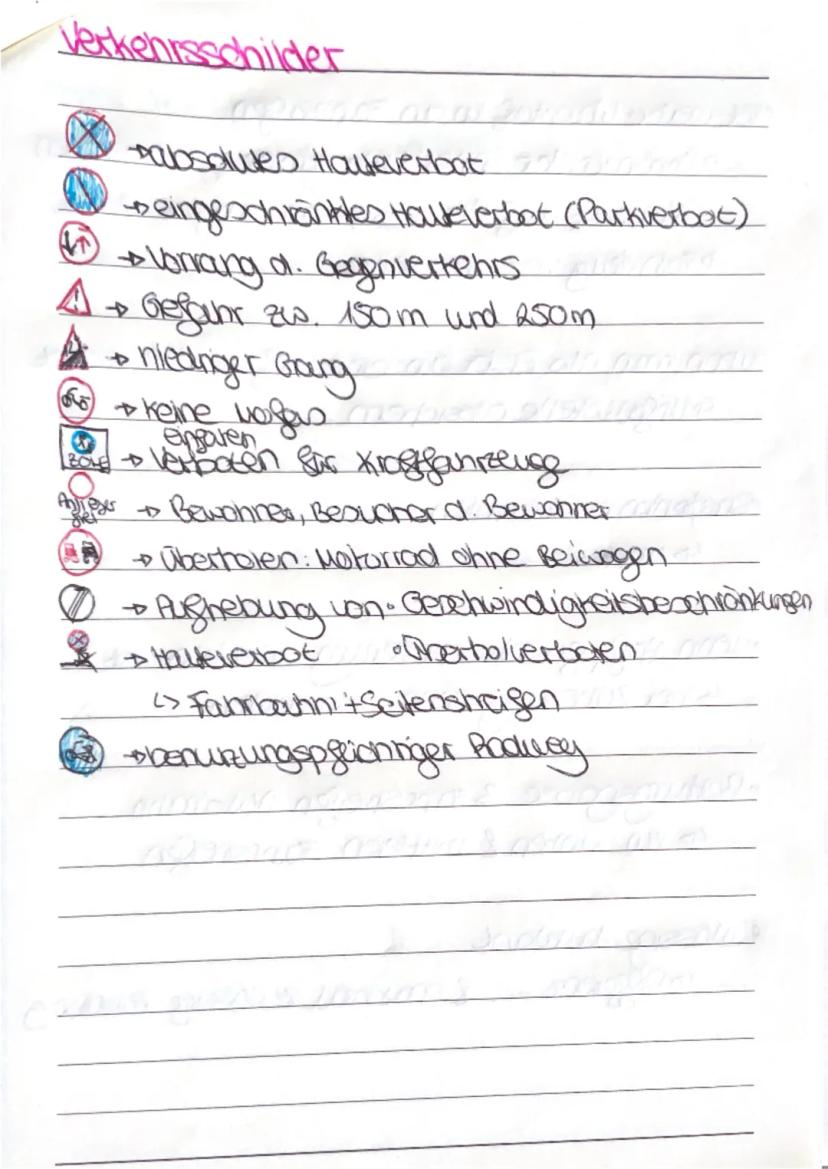 Verkehrsschilder
→ absolutes Halteverbot
→ eingeschränktes Halteverbot (Parkverbot)
→ Vorrang d. Gegenverkehrs
→ Gefahr zw. 150m und 250m
→ niedriger Gang
→ keine Mofas
einfahren
ZONE → Verboten für Kraftfahrzeuge
Anlieger frei → Bewohner, Besucher d. Bewohner
→ Überholen: Motorrad ohne Beiwagen
→ Aufhebung von • Geschwindigkeitsbeschränkungen
→ Halteverbot • Überholverboten
↳ Fahrbahn + Seitenstreifen
→ benutzungspflichtiger Radweg